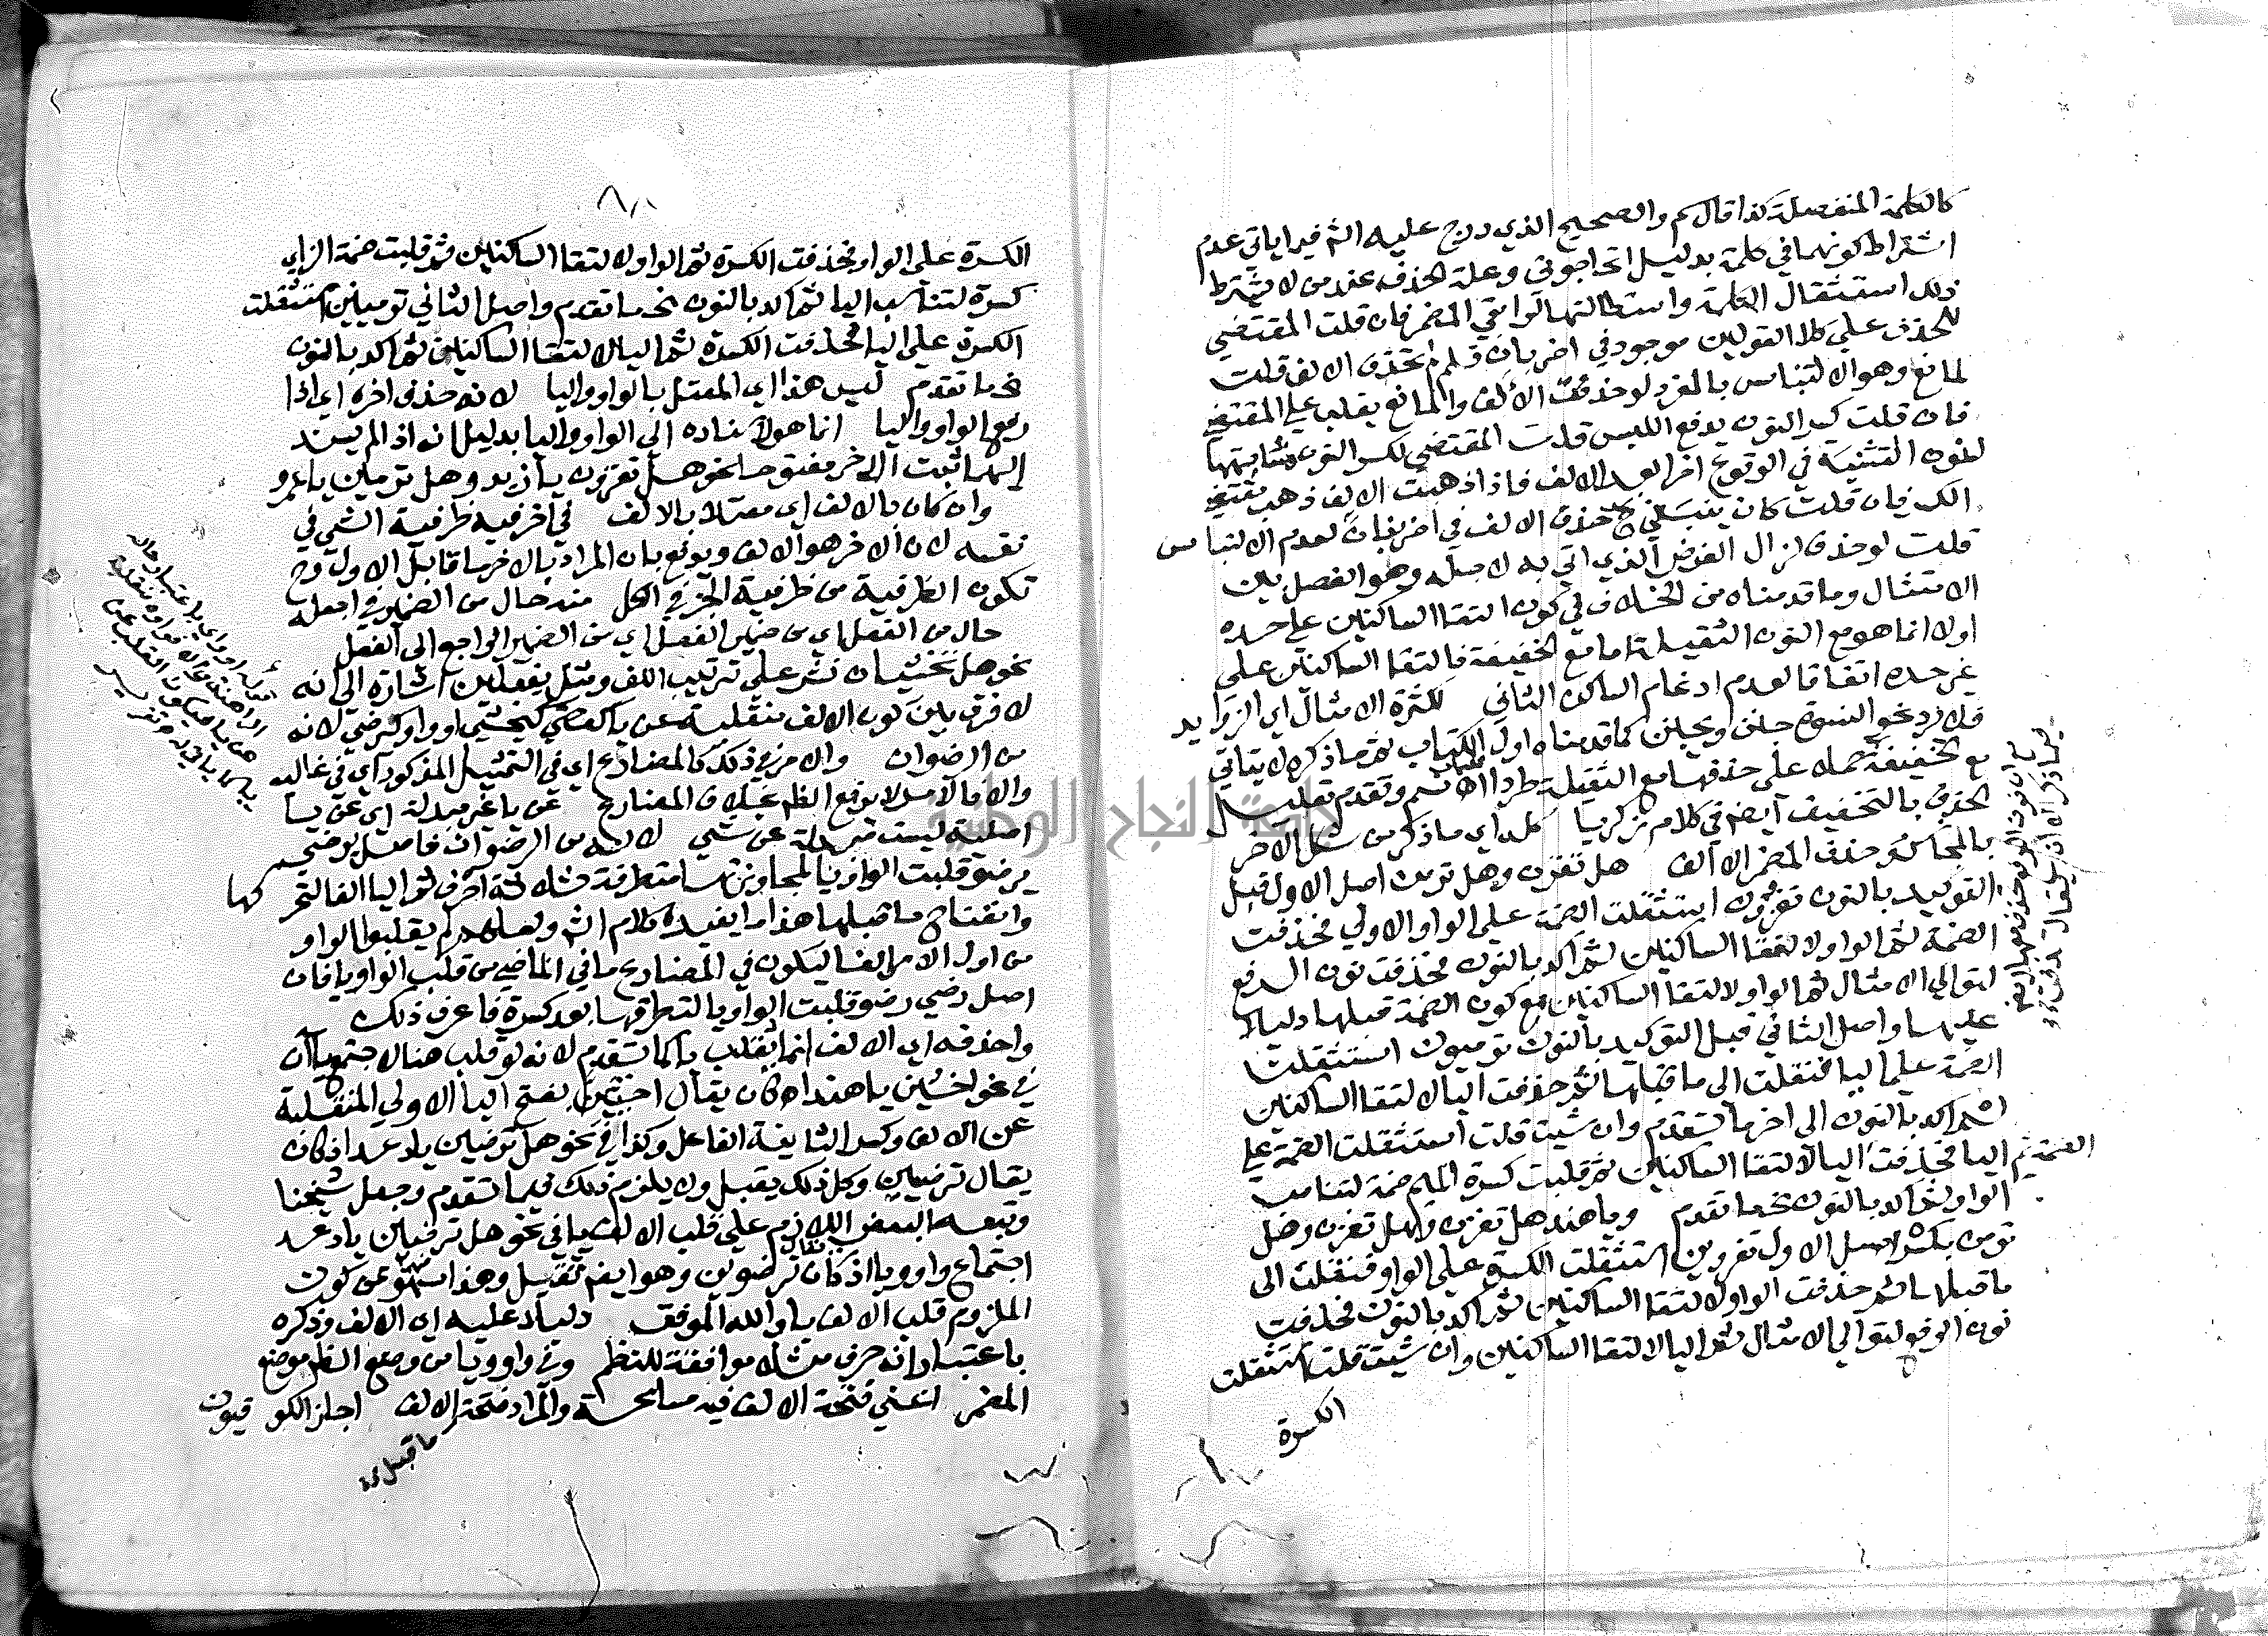 كالكلمة المنفصلة كذا قال سم والصحيح الذي درج عليه الشم فيما ياتي عدم
اشتراط كونهما في كلمة بدليل اتحاجوني وعلة الحذف عند من لا يشترط
ذلك استثقال الكلمة واستطالتها لوابقي المضمر فان قلت المقتضي
للحذف على كلا القولين موجود في اضربان فلم لم تحذف الالف قلت
لمانع وهو الالتباس بالمفرد لو حذفت الالف والمانع يغلب على المقتضي
فان قلت كسر النون يدفع اللبس قلت المقتضي لكسر النون مشابهتها
لنون التثنية في الوقوع اخرا بعد الالف فاذا ذهبت الالف ذهب مقتضي
الكسر فان قلت كان ينبغي ح حذف الالف في اضربنان لعدم الالتباس
قلت لو حذف لزال الغرض الذي اتي به لاجله وهو الفصل بين
الامثال وما قدمناه من الخلاف في كون التقا الساكنين على حده
اولا انما هو مع النون الثقيلة اما مع الخفيفة فالتقا الساكنين على
غير حده اتفاقا لعدم ادغام الساكن الثاني لكثرة الامثال اي الزوايد
فلا يرد نحو النسوة جنن ويجنن كما قدمناه اول الكتاب ثم ما ذكره لا يتاتي
مع الخفيفة حمله على حذفها مع الثقيلة طردا للباب سم وتقدم تعليل
الحذف بالتخفيف ايضا في كلام زكريا كله اي ما ذكر من شكل الاخر
بالمجانس وحذف المضمر الا الالف هل تغزن وهل ترمن اصل الاول قبل
التوكيد بالنون تغزوون استثقلت الضمة على الواو الاولى فحذفت
الضمة ثم الواو لالتقا الساكنين ثم اكد بالنون فحذفت نون الرفع
لتوالي الامثال ثم الواو لالتقا الساكنين مع كون الضمة قبلها دليلا
عليها واصل الثاني قبل التوكيد بالنون ترميون استثقلت
الضمة على اليا فنقلت الى ما قبلها ثم حذفت اليا لالتقا الساكنين
ثم اكد بالنون الى اخر ما تقدم وان شيت قلت استثقلت الضمة على
اليا فحذفت الضمة ثم اليا لالتقا الساكنين ثم قلبت كسرة الميم ضمة لتناسب
الواو ثم اكد بالنون نحو ما تقدم ويا هند هل تغزن وهل تغزن وهل
ترمن بكسر اصل الاول تغزوين استثقلت الكسرة على الواو فنقلت الى
ما قبلها ثم حذفت الواو لالتقا الساكنين ثم اكد بالنون فحذفت
نون الرفع لتوالي الامثال ثم اليا لالتقا الساكنين وان شيت قلت استثقلت
الكسرة
الكسرة على الواو فحذفت الكسرة ثم الواو لالتقا الساكنين ثم قلبت ضمة الزاي
كسرة لتناسب اليا ثم اكد بالنون نحو ما تقدم واصل الثاني ترميين استثقلت
الكسرة على اليا فحذفت الكسرة ثم اليا لالتقا الساكنين ثم اكد بالنون
نحو ما تقدم ليس هذا اي المعتل بالواو واليا لانه حذف اخره اي اذا
رفع الواو واليا انما هو لاسناده الى الواو واليا بدليل انه اذا لم يسند
اليهما ثبت الاخر مفتوحا نحو هل تغزون يا زيد وهل ترمين يا عمرو
وان كان بالالف اي معتلا بالالف في اخر فيه ظرفية الشي في
نفسه لان الاخر هو الالف ويدفع بان المراد بالاخر ما قابل الاول وح
تكون الظرفية من ظرفية الجز في الكل منه حال من الضمير في اجعله
حال من الفعل اي من ضمير الفعل اي من الضمير الراجع الى الفعل
نحو هل تخشيان نشر على ترتيب اللف ومثل بفعلين اشارة الى انه
لا فرق بين كون الالف منقلبة عن يا كخشي يخشى او واو كرضي لانه
من الرضوان والامر في ذلك كالمضارع اي في التمثيل المذكور اي في غالبه
والا فالامر لا يرفع الظاهر بخلاف المضارع عن يا غير مبدلة اي عن يا
اصلية ليست مبدلة عن شي لانه من الرضوان فاصل يرضى
يرضو قلبت الواو يا لمجاوزتها متطرفة ثلاثة احرف ثم اليا الفا لتحركها
وانفتاح ما قبلها هذا ما يفيده كلام الشم ولعلهم لم يقلبوا الواو
من اول الامر الفا ليكون في المضارع ما في الماضي من قلب الواو يا فان
اصل رضي رضو قلبت الواو يا لتطرفها بعد كسرة فاعرف ذلك
واحذفه اي الالف انما لم تقلب يا كما تقدم لانه لو قلب هنا لاجتمع يا ان
في نحو اخشين يا هند اذ كان يقال اخشيين بفتح اليا الاولى المنقلبة
عن الالف وكسر الثانية الفاعل وكذا في نحو هل ترضين يا دعد اذ كان
يقال ترضيين وكل ذلك يقبل ولا يلزم ذلك فيما تقدم وجعل شيخنا
وتبعه البعض اللازم على قلب الالف يا في نحو هل ترضين يا دعد
اجتماع واو ويا اذ كان يقال ترضوين وهو ايضا ثقيل وهذا سهو عن كون
الملزوم قلب الالف يا والله الموفق دليلا عليه اي الالف وذكره
باعتبار انه حرف مثله موافقة للنظم وفي واو ويا من وضع الظاهر موضع
المضمر اعني فتحة الالف فيه مسامحة والمراد فتحة الالف اجاز الكوفيون
ما قبل